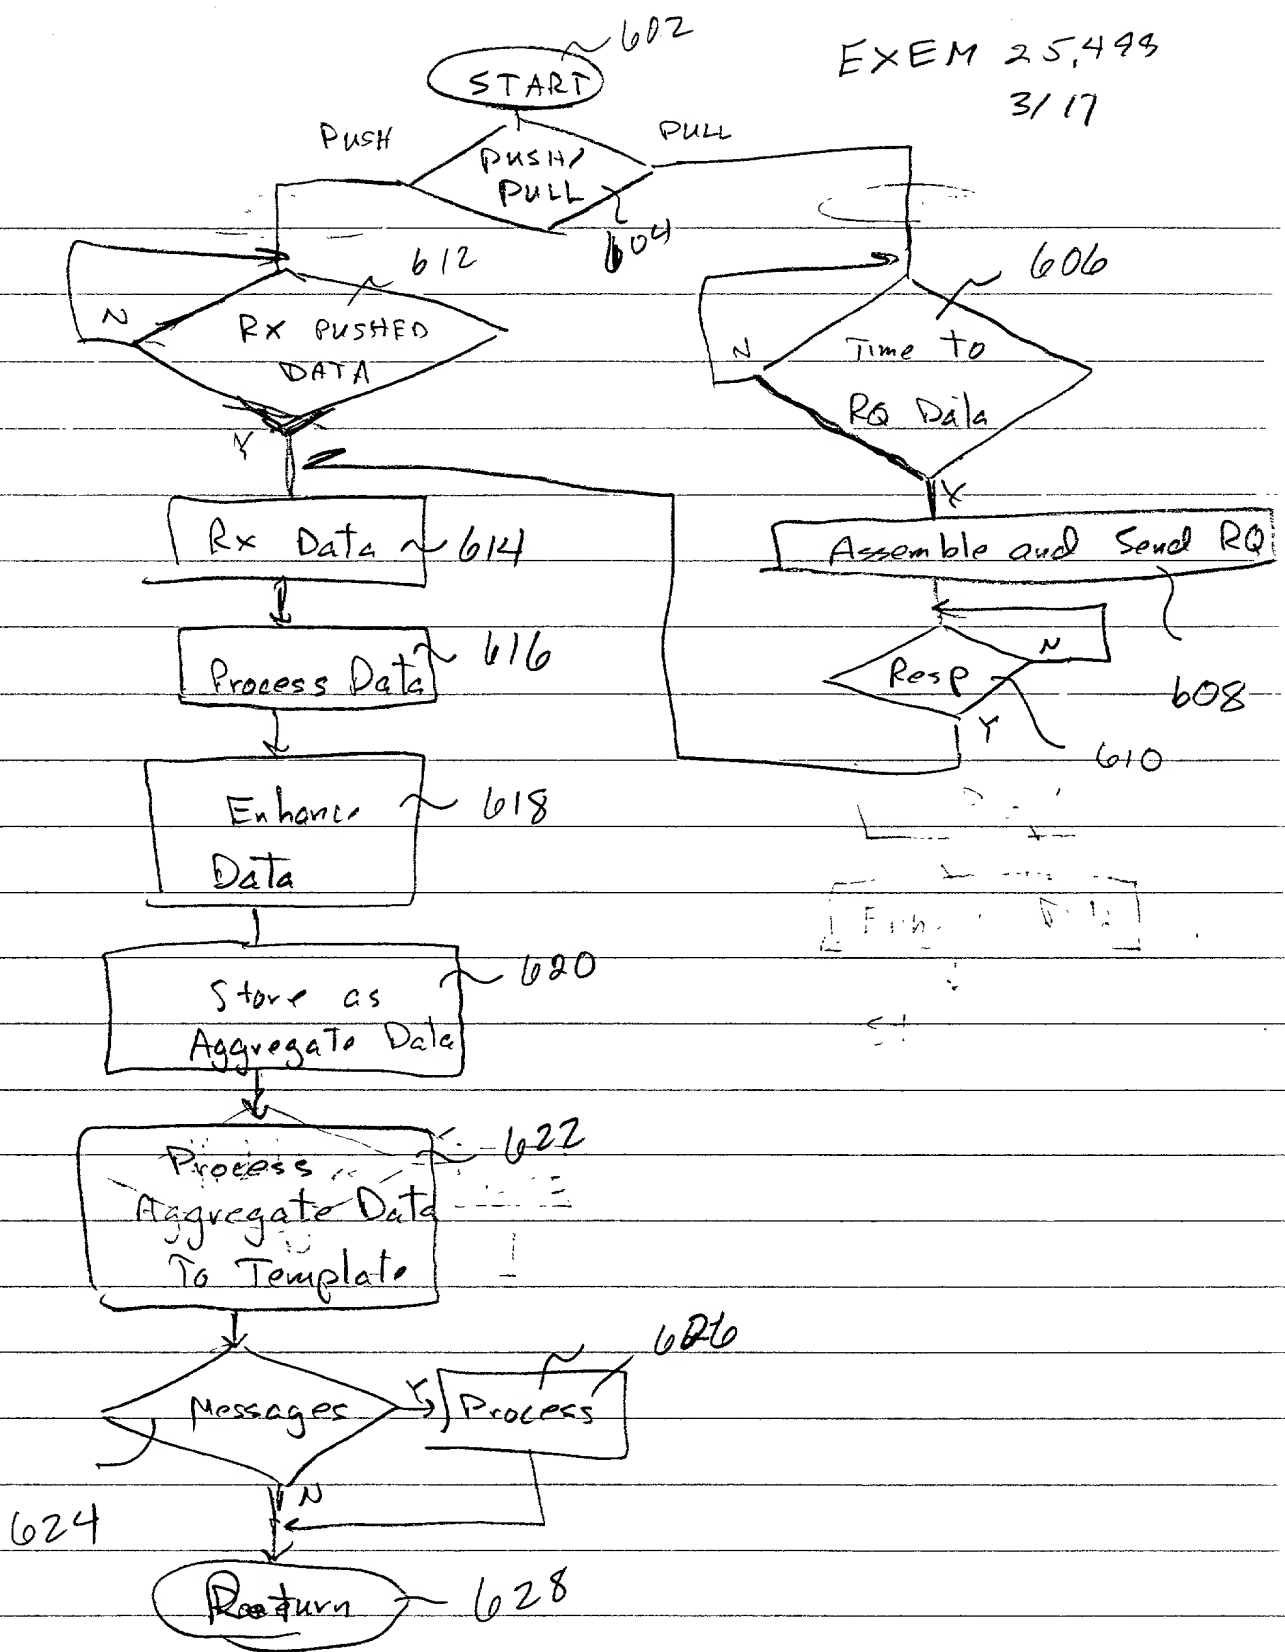 602
START
EXEM 25,493
3/17
PUSH
PULL
PUSH/
PULL
604
612
606
N
RX PUSHED
DATA
Y
N
Time to
RQ Data
Y
Rx Data
614
Assemble and Send RQ
608
Process Data
616
Resp
N
Y
610
Enhance
Data
618
Store as
Aggregate Data
620
Process
Aggregate Data
To Template
622
Messages
Y
Process
626
N
624
Return
628